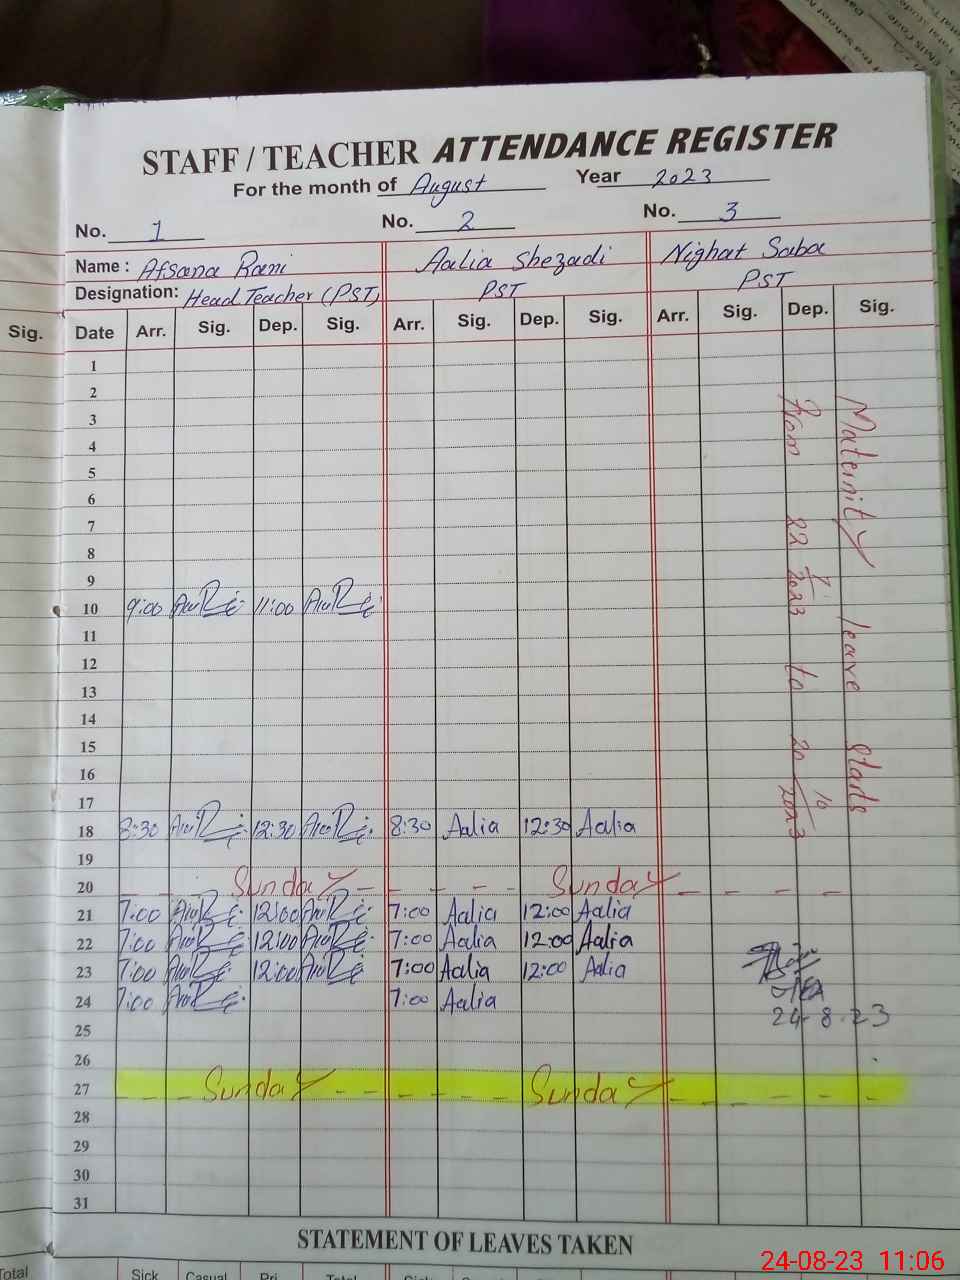 STAFF / TEACHER ATTENDANCE REGISTER
For the month of August Year 2023
No. 1 No. 2 No. 3
Name : Afsana Rani Aalia Shezadi Nighat Saba
Designation: Head Teacher (PST) PST PST
Sig. Date Arr. Sig. Dep. Sig. Arr. Sig. Dep. Sig. Arr. Sig. Dep. Sig.
1
2
3
4
5
6
7
8
9
10 9:00 11:00
11
12
13
14
15
16
17
18 8:30 12:30 8:30 Aalia 12:30 Aalia
19
20 Sunday Sunday
21 7:00 12:00 7:00 Aalia 12:00 Aalia
22 7:00 12:00 7:00 Aalia 12:00 Aalia
23 7:00 12:00 7:00 Aalia 12:00 Aalia
24 7:00 7:00 Aalia
25
26
27 Sunday Sunday
28
29
30
31
Maternity leave starts
From 22 2023 to 20 10 2023
24-8-23
STATEMENT OF LEAVES TAKEN
Total Sick Casual Pri. Total Sick
24-08-23 11:06